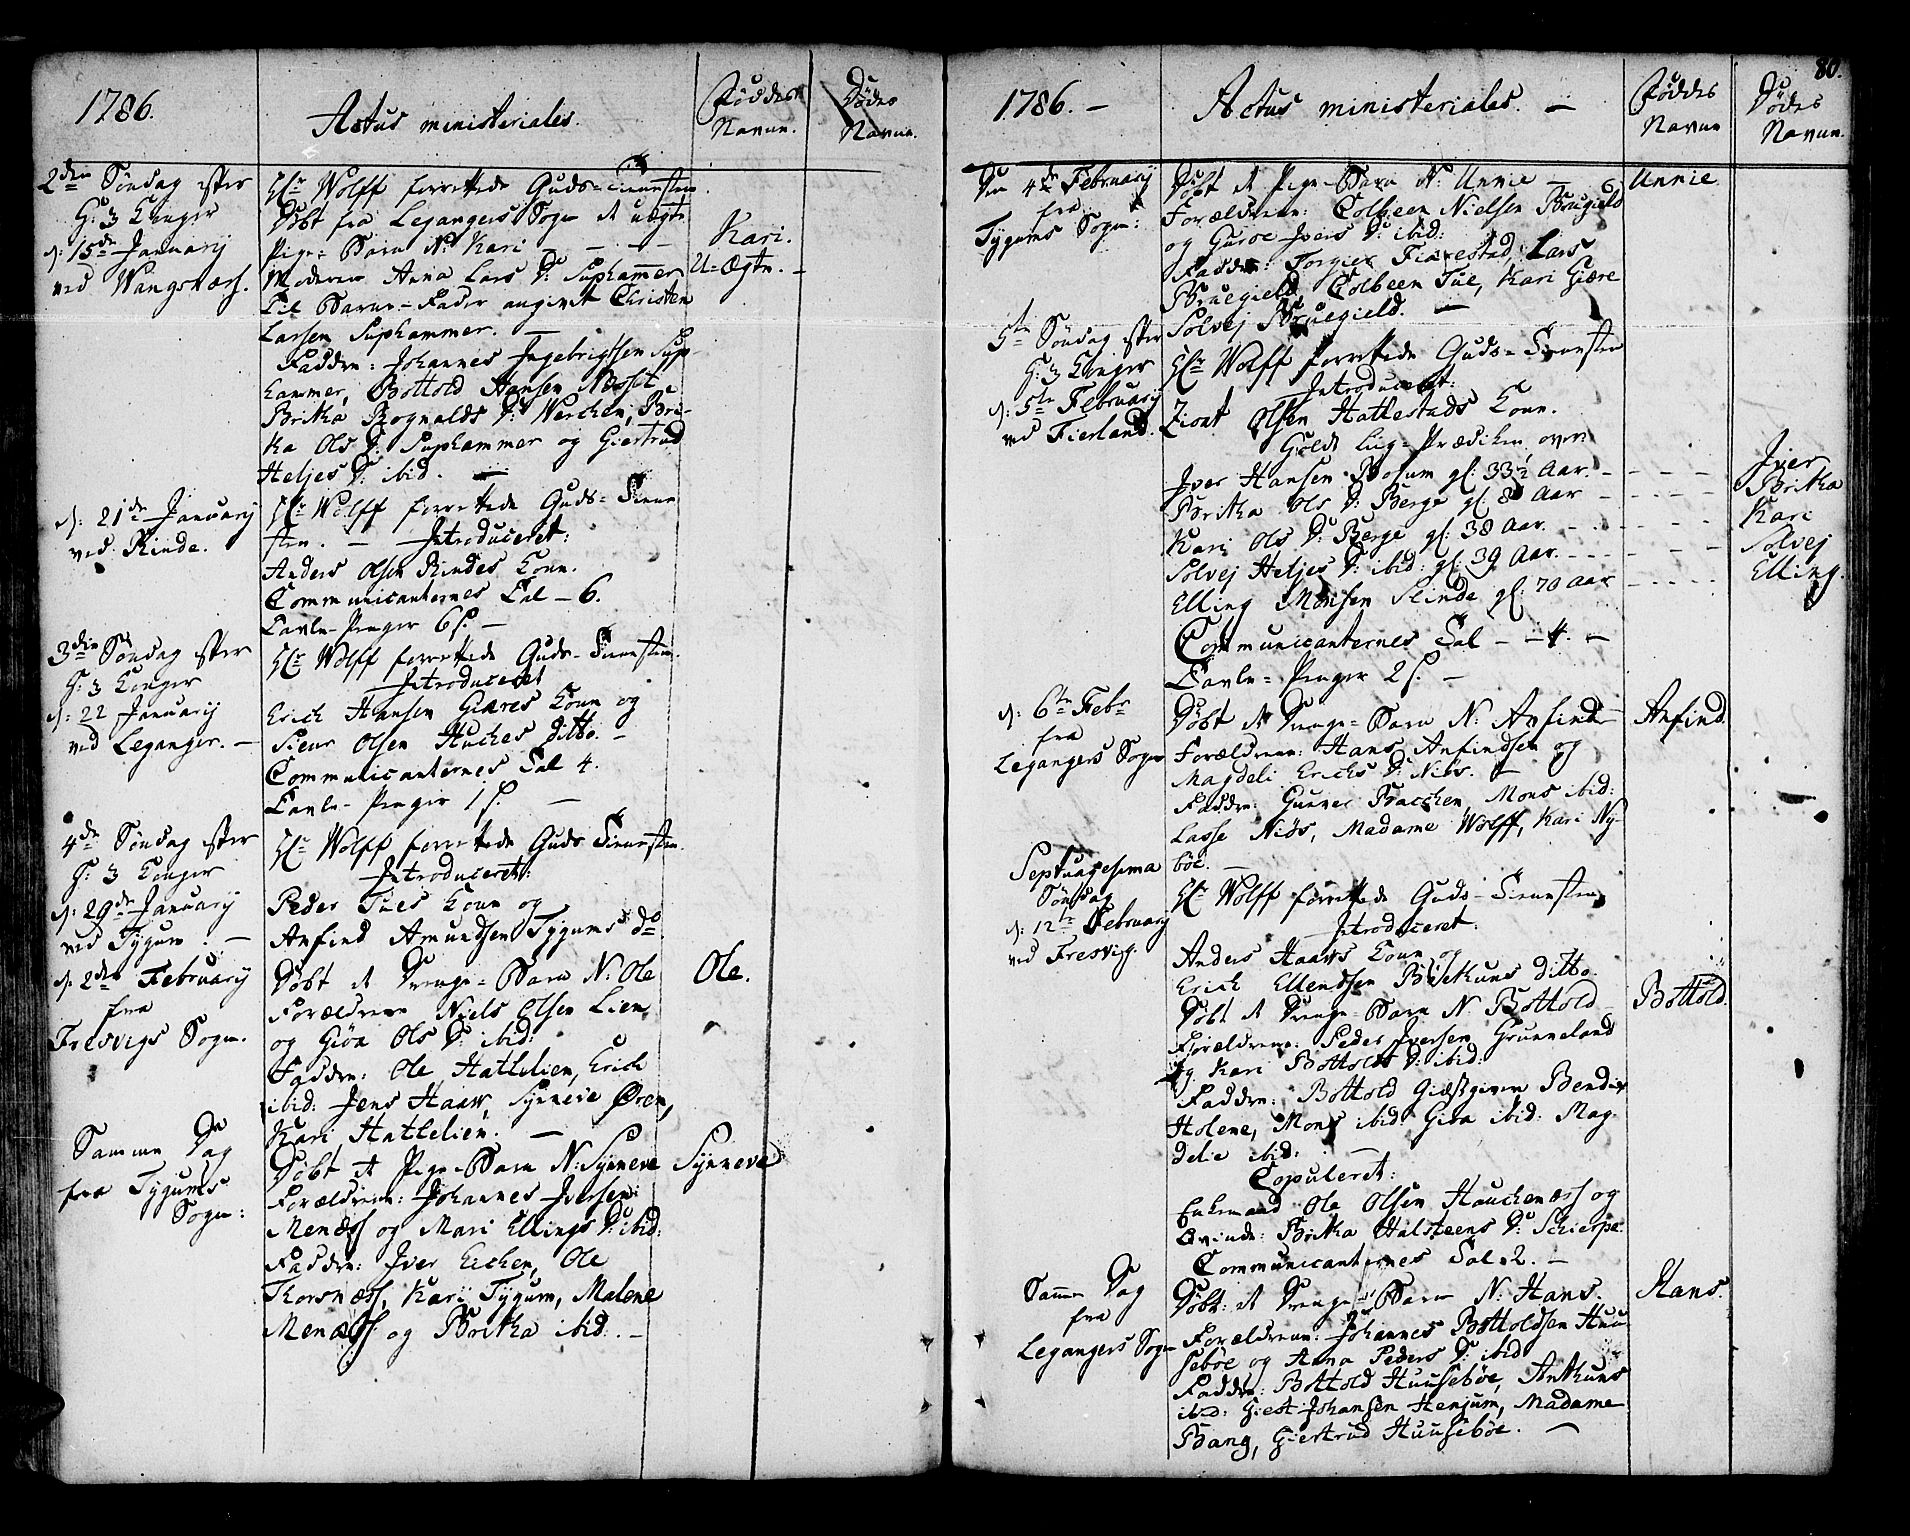 1786.
Actus ministeriales.
Føddes Navne.
Dødes Navne.
2den Søndag efter
H: 3 Konger
d: 15de Januarij
ved Wangsnæss.
Hr Wolff forrettede Guds-Tienesten.
Døbt fra Legangers Sogn et uægte
Pige-Barn N: Kari
Moderen Anna Lars D: Suphammer
Til Barne-Fader angivet Christen
Larsen Suphammer. —
Faddre: Johannes Ingebrigtsen Sup-
hammer, Bottold Hansen Nesset
Britha Rognalds D: Werchen, Bri-
tha Ols D: Suphammer og Giertrud
Heljes D: ibid. —
Kari.
U-Ægte. —
d: 21de Januarij
ved Rinde.
Hr Wolff forrettede Guds-Tiene-
sten. — Introduceret:
Anders Olsen Rindes Kone.
Communicanternes Tal — 6.
Tavle-Penger 6 s. —
3die Søndag efter
H: 3 Konger
d: 22 Januarij
ved Leganger. —
Hr Wolff forrettede Guds-Tienesten.
Introduceret
Erich Hansen Giæres Kone og
Siur Olsen Huches ditto. —
Communicanternes Tal 4.
Tavle-Penger 1 s. —
4de Søndag efter
H: 3 Konger
d: 29de Januarij
ved Tygum. —
Hr Wolff forrettede Guds Tienesten.
Introduceret:
Peder Tues Kone og
Anfind Amundsen Tygums do
d: 2den Februarij
fra
Fresvigs Sogn.
Døbt et Drenge-Barn N: Ole
Forældrene Niels Olsen Lien
og Giøa Ols D: ibid:
Faddre: Ole Hatlelien, Erich
ibid: Jens Haaw, Synneve Øren,
Kari Hatlelien. —
Ole.
Samme Dag
fra Tygums
Sogn:
Døbt et Pige-Barn N: Synneve
Forældrene: Johannes Iversen
Menæss og Mari Ellings D: ibid:
Faddre: Iver Eichen, Ole
Thorsnæss, Kari Tygum, Malene
Menæss og Britha ibid. —
Synneve
80.
1786. —
Actus ministeriales. —
Føddes Navne
Dødes Navne.
Den 4de Februarij
fra
Tygums Sogn:
Døbt et Pige-Barn N: Unnie —
Forældrene: Colbeen Nielsen Bruegield
og Guroe Ivers D: ibid:
Faddre: Torgier Fiærestad, Lars
Bruegield Colbeen Tue, Kari Giære
Solvej Bruegield. —
Unnie
5te Søndag efter
H: 3 Konger
d: 5te Februarij
ved Fierland.
Hr Wolff forrettede Guds-Tienesten
Introduceret:
Olsen Hatlestads Kone.
Holdt Liig-Prædiken over
Iver Hansen Bosum gl: 33½ Aar.
Britha Ols D: Berge gl: 8 Aar
Kari Ols D: Berge gl: 38 Aar.
Solvej Heljes D: ibid: gl: 39 Aar.
Elling Monsen Slinde gl: 70 Aar
Communicanternes Tal — 4. —
Tavle-Penger 2 s. —
Iver
Britha
Kari
Solvej
Elling.
d: 6te Febr
fra
Legangers Sogn
Døbt et Drenge-Barn N: Anfind
Forældrene: Hans Anfindsen og
Magdeli Erichs D: Niøs. —
Faddre: Gunner Bracchen, Mons ibid:
Lasse Niøs, Madame Wolff, Kari Ny-
bøe. —
Anfind.
Septuagesima
Søndag
d: 12te Februarij
ved Fresvig.
Hr Wolff forrettede Guds-Tienesten
Introduceret:
Anders Haaws Kone og
Erich Ellendsen ditto.
Døbt et Drenge-Barn N: Bottold
Forældrene: Peder Iversen Grunneland
og Kari Bottolds D: ibid:
Faddre: Bottold Giæstgiver Bendix
Holene, Mons ibid Giøa ibid: Mag-
delie ibid: —
Copuleret:
Enkemand Ole Olsen Hauchenæss og
Qvinde: Britha Halsteens D: Schierpe.
Communicanternes Tal 2. —
Bottold.
Samme Dag
fra
Legangers Sogn
Døbt: et Drenge-Barn N: Hans.
Forældrene: Johannes Bottoldsen Huu-
sebøe og Anna Peders D: ibid
Faddre: Bottold Huusebøe, Anthuns
ibid: Giest Johansen Henjum, Madame
Bang, Giertrud Huusebøe. —
Hans.